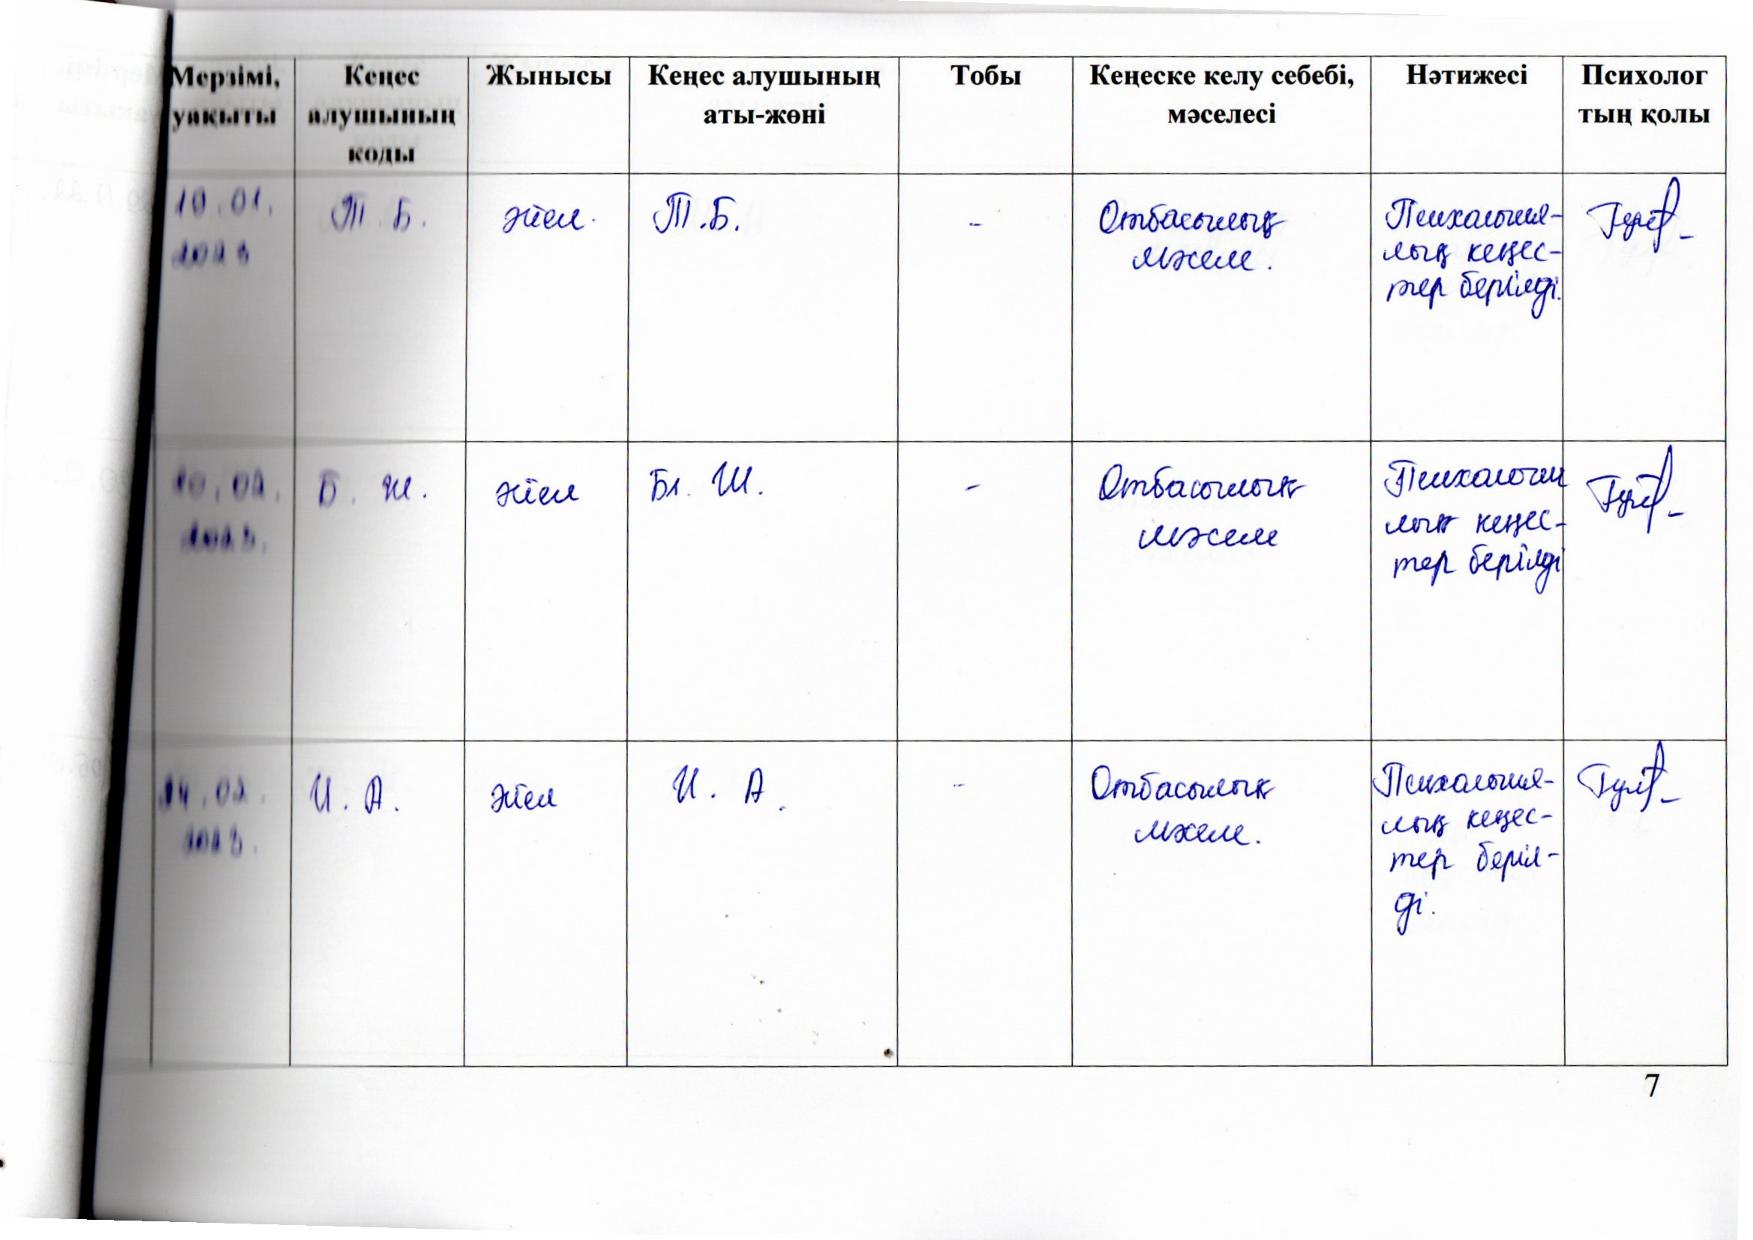 Мерзімі, уақыты
Кеңес алушының коды
Жынысы
Кеңес алушының аты-жөні
Тобы
Кеңеске келу себебі, мәселесі
Нәтижесі
Психолог тың қолы
10.01.
2023
Т. Б.
әйел.
Т.Б.
-
Отбасылық
мәселе.
Психология-
лық кеңес-
тер берілді.
10.02.
2023.
Б. Ш.
әйел
Бл. Ш.
-
Отбасылық
мәселе
Психологи
лық кеңес-
тер берілді
14.02.
2023.
И. А.
әйел
И. А.
-
Отбасылық
мәселе.
Психология-
лық кеңес-
тер беріл-
ді.
7